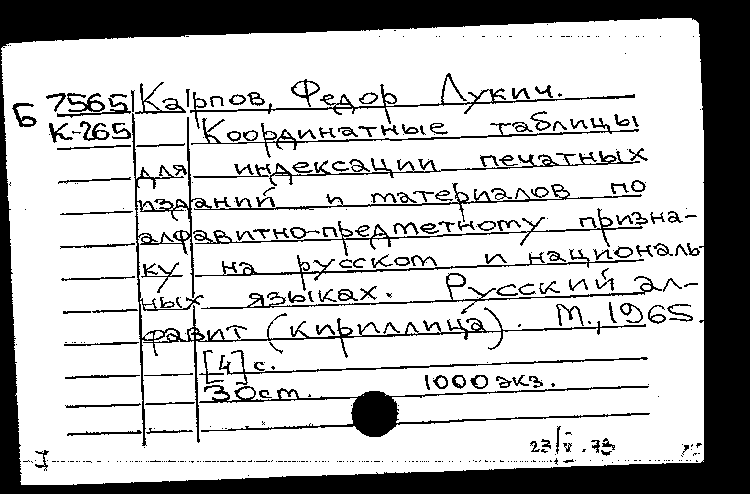 Б 7565 Карпов, Федор Лукич.
К-265 Координатные таблицы
для индексации печатных
изданий и материалов по
алфавитно-предметному призна-
ку на русском и националь-
ных языках. Русский ал-
фавит (кириллица). М., 1965.
[4] с.
30 ст. 1000 экз.
23/V.73
I